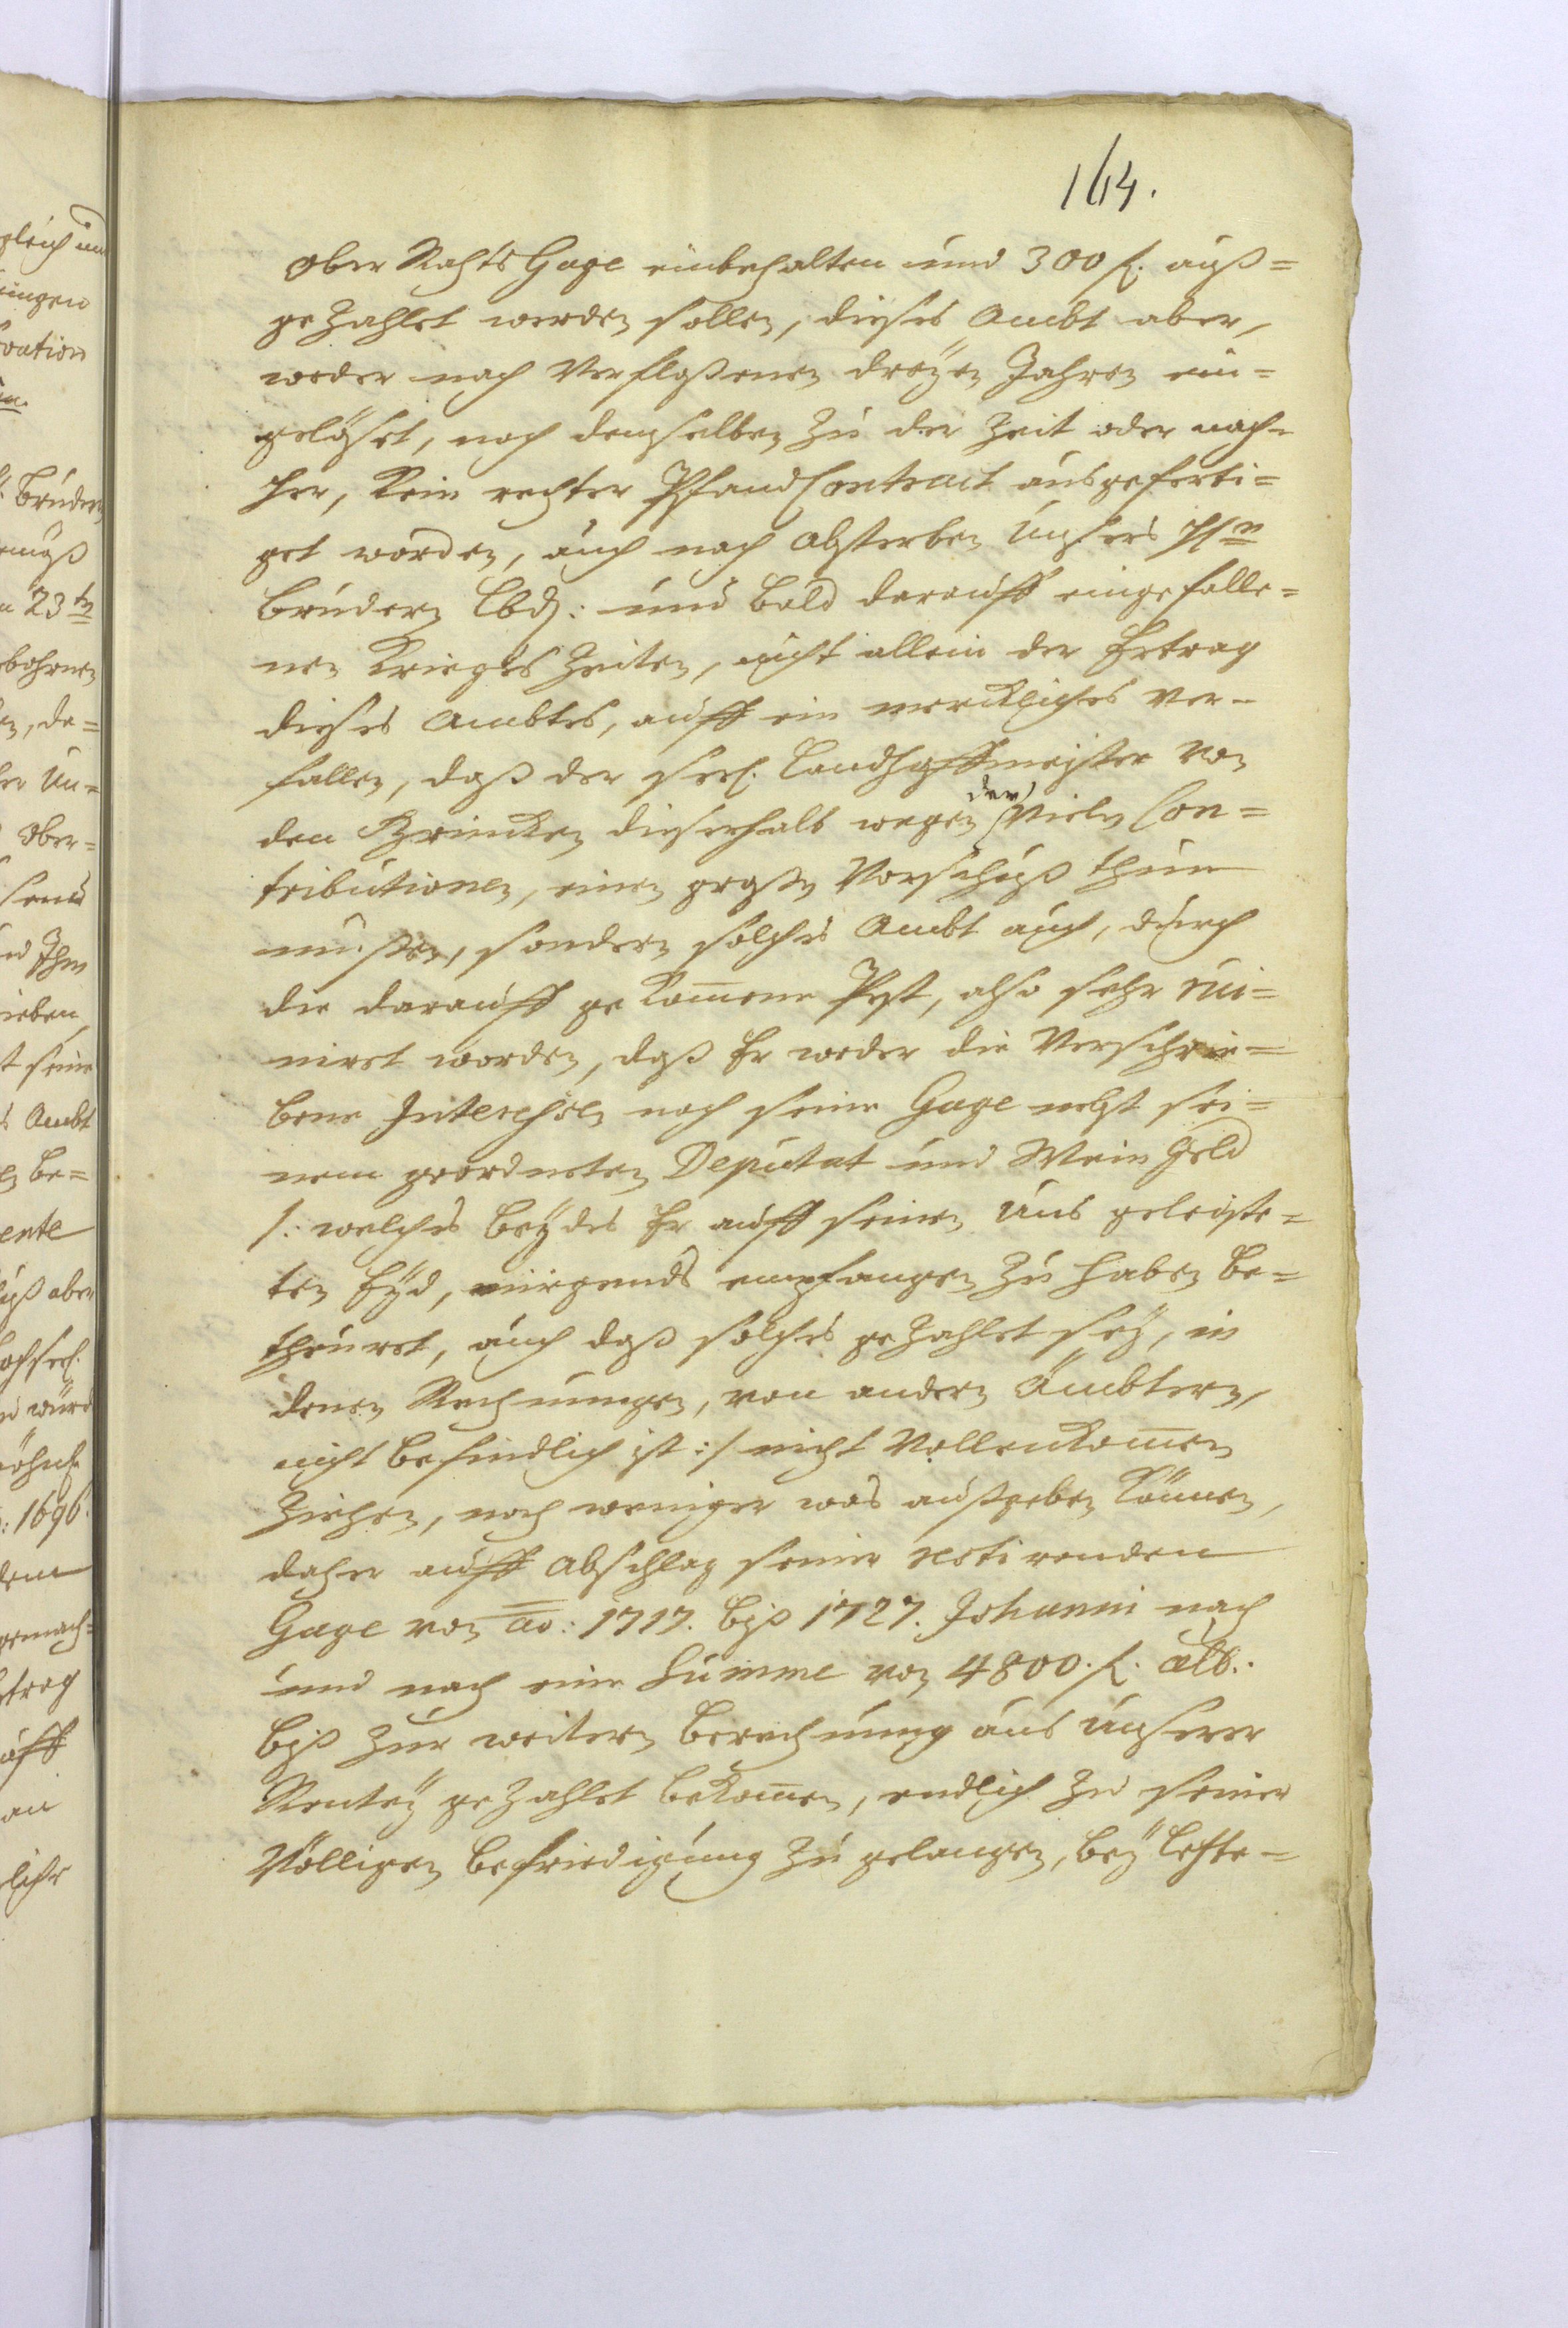 164.
gleich und
Ober Rahts Gage einbehalten und 300 f. auß=
ungen
gezahlet werden sollen, dieses Ambt aber,
vation
weder nach Verfloßenen dreyen Jahren ein=
gelöset, noch demselben zu der Zeit oder nach=
her, kein rechter Pfand Contract ausgeferti=
Brudern
get worden, auch nach Absterben Unsers
23ten
Brudern Lbd: und bald darauff eingefalle=
bohrnen
nen Krieges Zeiten, nicht allein der Ertrag
en, de=
dieses Ambtes, auff ein merckliches ver=
er Un=
fallen, daß der seel. Landhoffmeister von
Ober=
den Brincken dieserhalb wegen der Vielen Con=
tributionen, einen großen Vorschuß thun
müßen, sondern solches Ambt auch, durch
Ihm
die darauff gekom̅ene Pest, also sehr rui=
ieben
niret worden, daß Er weder die Verschrie=
t seine
bene Interessen noch seine Gage nebst sei=
Ambt
nem geordneten Deputat und Wein Geld
be=
/: welches beydes Er auff seinen Uns geleiste=
ente
ten Eyd, nirgends empfangen zu haben be=
uß aber
theuret, auch daß solches gezahlet sey, in
ochseel.
denen Rechnungen, von andern Ämbtern,
würd
nicht befindlich ist :/ nicht Vollenkom̅en
ziehen, noch weniger was außgeben können,
: 1696.
daher auff Abschlag seiner restirenden
dem
Gage von ao: 1717. biß 1727. Johanni nach
gemach=
und nach eine Summe von 4800. f. alb.
trag
biß zur weitern Berechnung aus Unserer
uff
Rentey gezahlet bekom̅en, endlich zu seiner
an
Völligen Befriedigung zu gelangen, bey Letzte=
liche